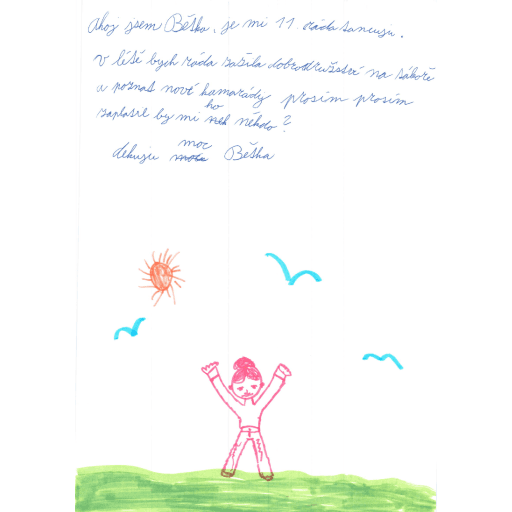 Ahoj jsem Běťka, je mi 11 ráda tancuju.
v létě bych ráda zažila dobrodružství na táboře
a poznat nové kamarády prosím prosím
zaplatil by mi ho někdo?
děkuju moc Běťka